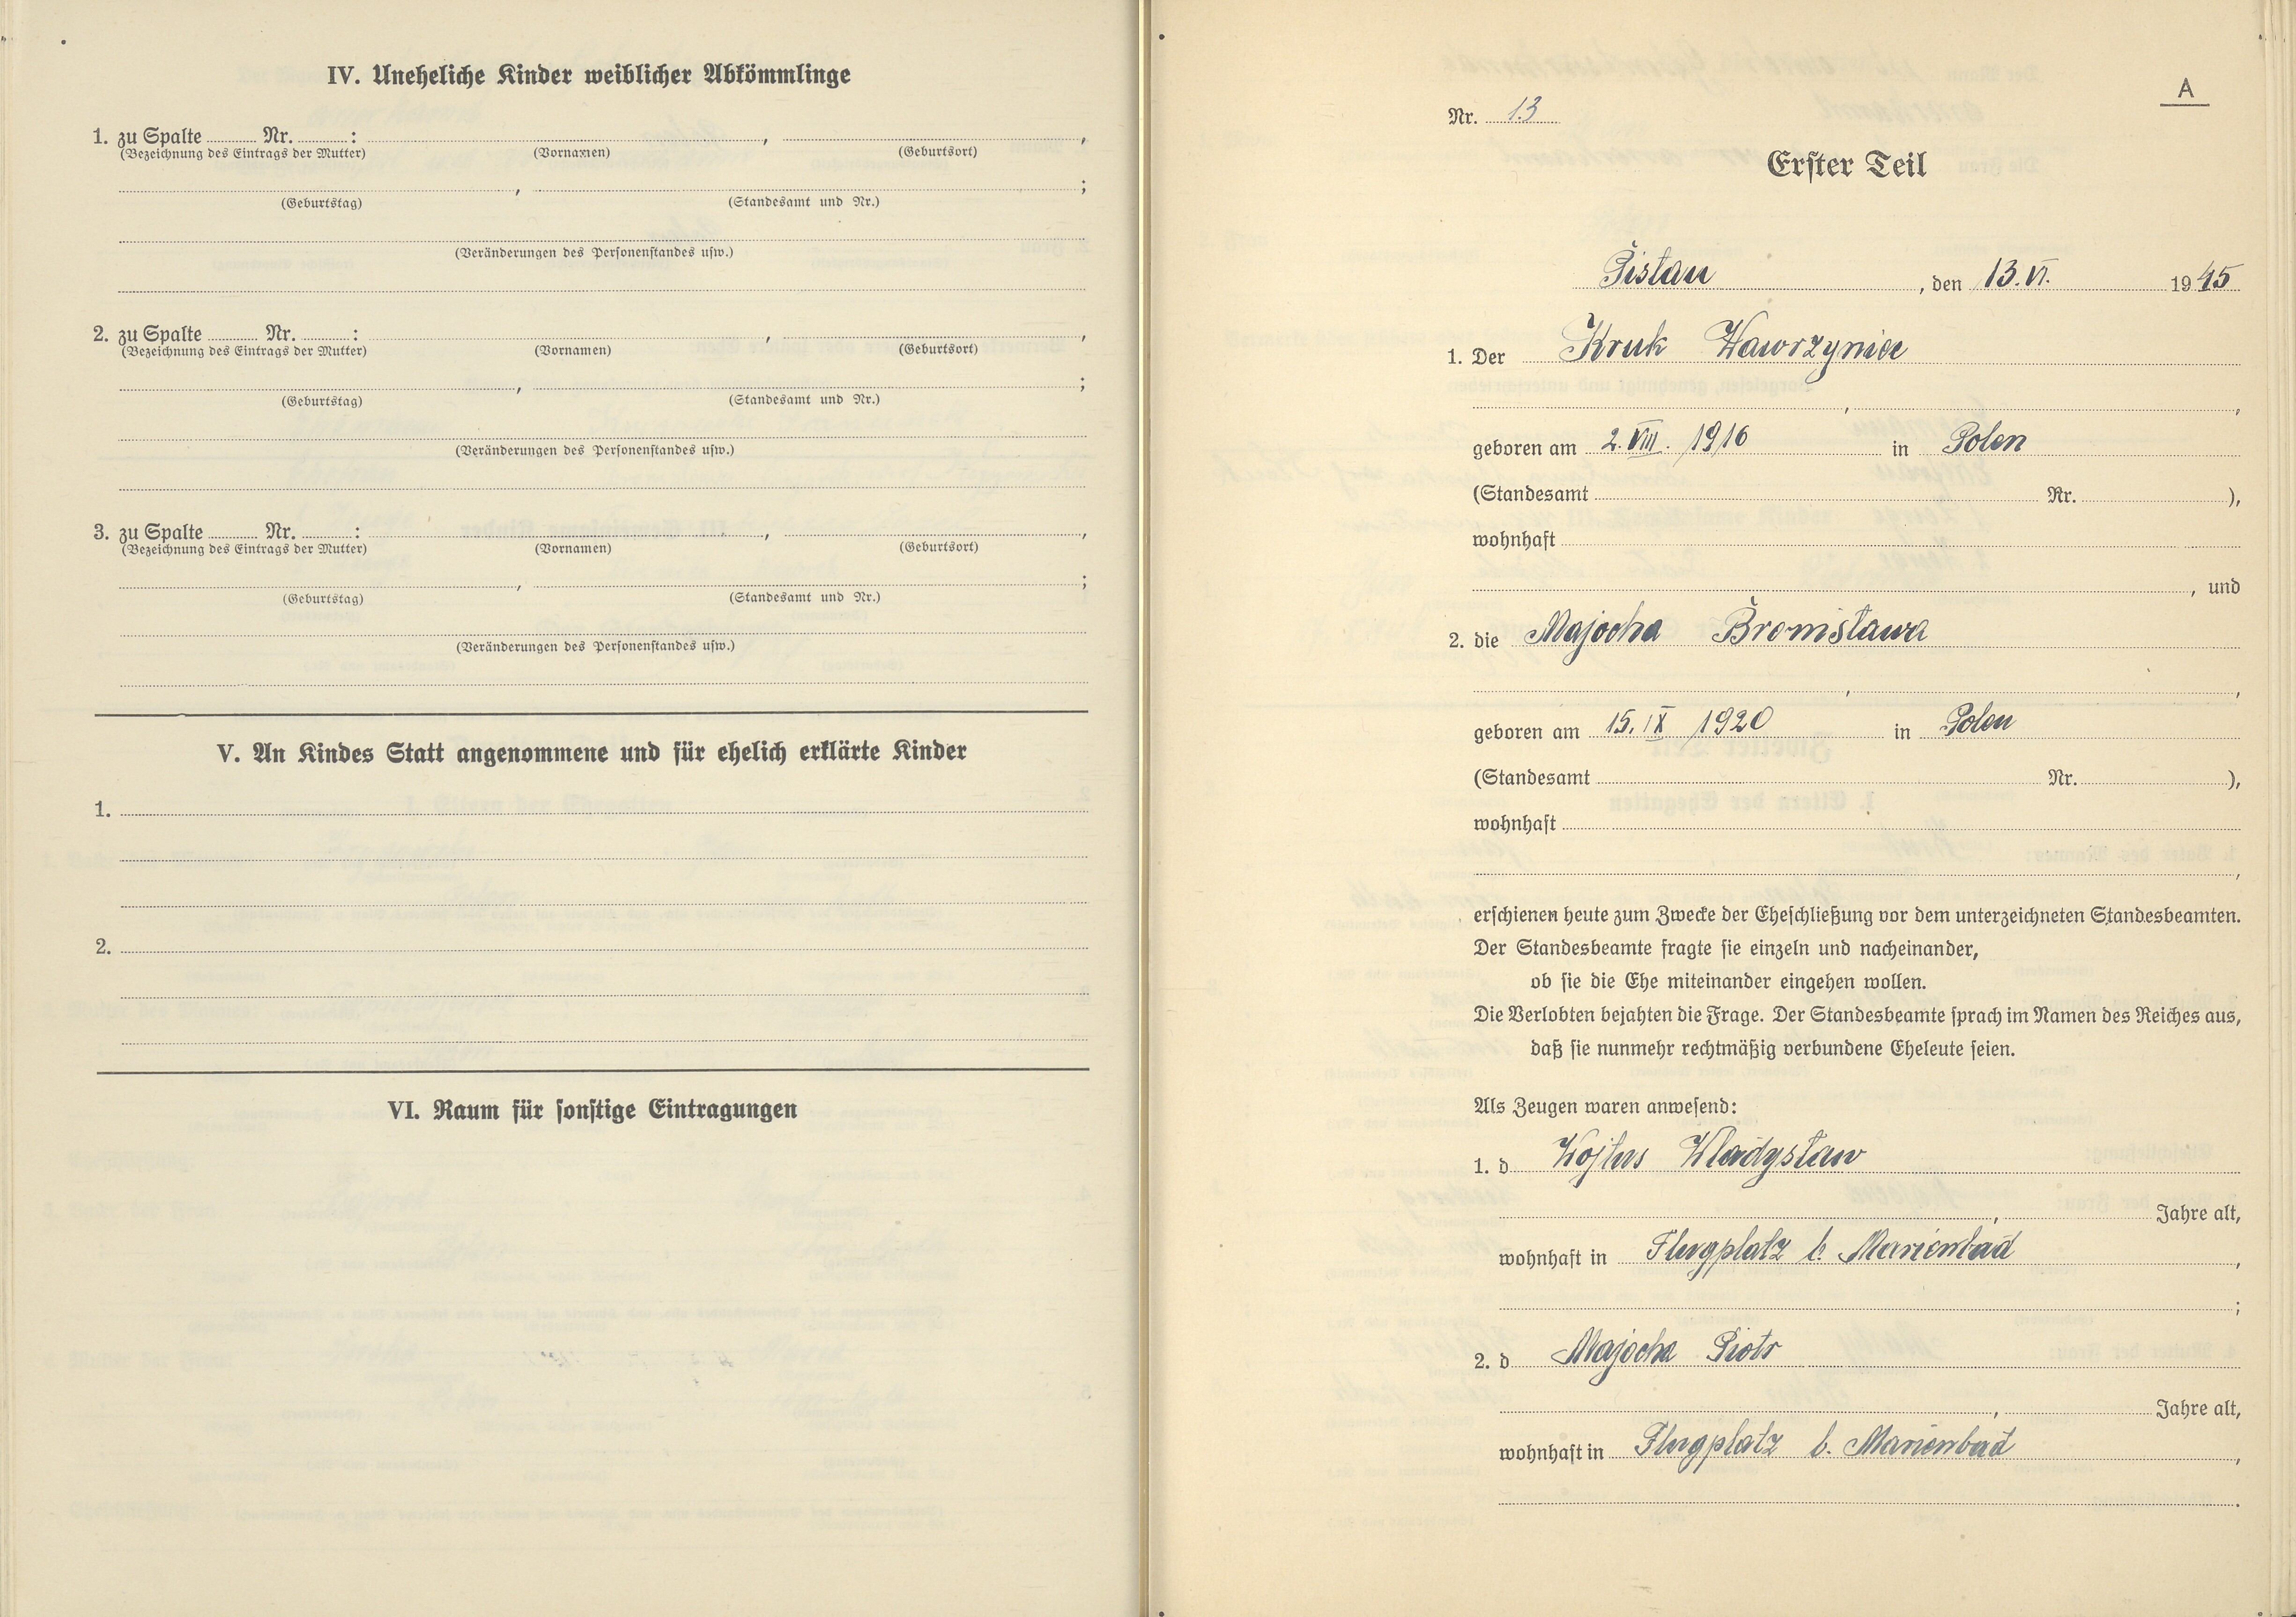 IV. Uneheliche Kinder weiblicher Abkömmlinge
1. zu Spalte Nr. : , ,
(Bezeichnung des Eintrags der Mutter) (Vornamen) (Geburtsort)
, ;
(Geburtstag) (Standesamt und Nr.)
(Veränderungen des Personenstandes usw.)
2. zu Spalte Nr. : , ,
(Bezeichnung des Eintrags der Mutter) (Vornamen) (Geburtsort)
, ;
(Geburtstag) (Standesamt und Nr.)
(Veränderungen des Personenstandes usw.)
3. zu Spalte Nr. : , ,
(Bezeichnung des Eintrags der Mutter) (Vornamen) (Geburtsort)
, ;
(Geburtstag) (Standesamt und Nr.)
(Veränderungen des Personenstandes usw.)
V. An Kindes Statt angenommene und für ehelich erklärte Kinder
1.
2.
VI. Raum für sonstige Eintragungen
A
Nr. 13
Erster Teil
Pistau, den 13. VI. 1945
1. Der Kruk Wawrzyniec
, ,
geboren am 2. VIII. 1916 in Polen
(Standesamt Nr. ),
wohnhaft
, und
2. die Majocha Bronisława
, ,
geboren am 15. IX 1920 in Polen
(Standesamt Nr. ),
wohnhaft
,
erschienen heute zum Zwecke der Eheschließung vor dem unterzeichneten Standesbeamten.
Der Standesbeamte fragte sie einzeln und nacheinander,
ob sie die Ehe miteinander eingehen wollen.
Die Verlobten bejahten die Frage. Der Standesbeamte sprach im Namen des Reiches aus,
daß sie nunmehr rechtmäßig verbundene Eheleute seien.
Als Zeugen waren anwesend:
1. d Wojtus Władysław
, Jahre alt,
wohnhaft in Flugplatz b. Marienbad,
;
2. d Majocha Piotr
, Jahre alt,
wohnhaft in Flugplatz b. Marienbad,
.